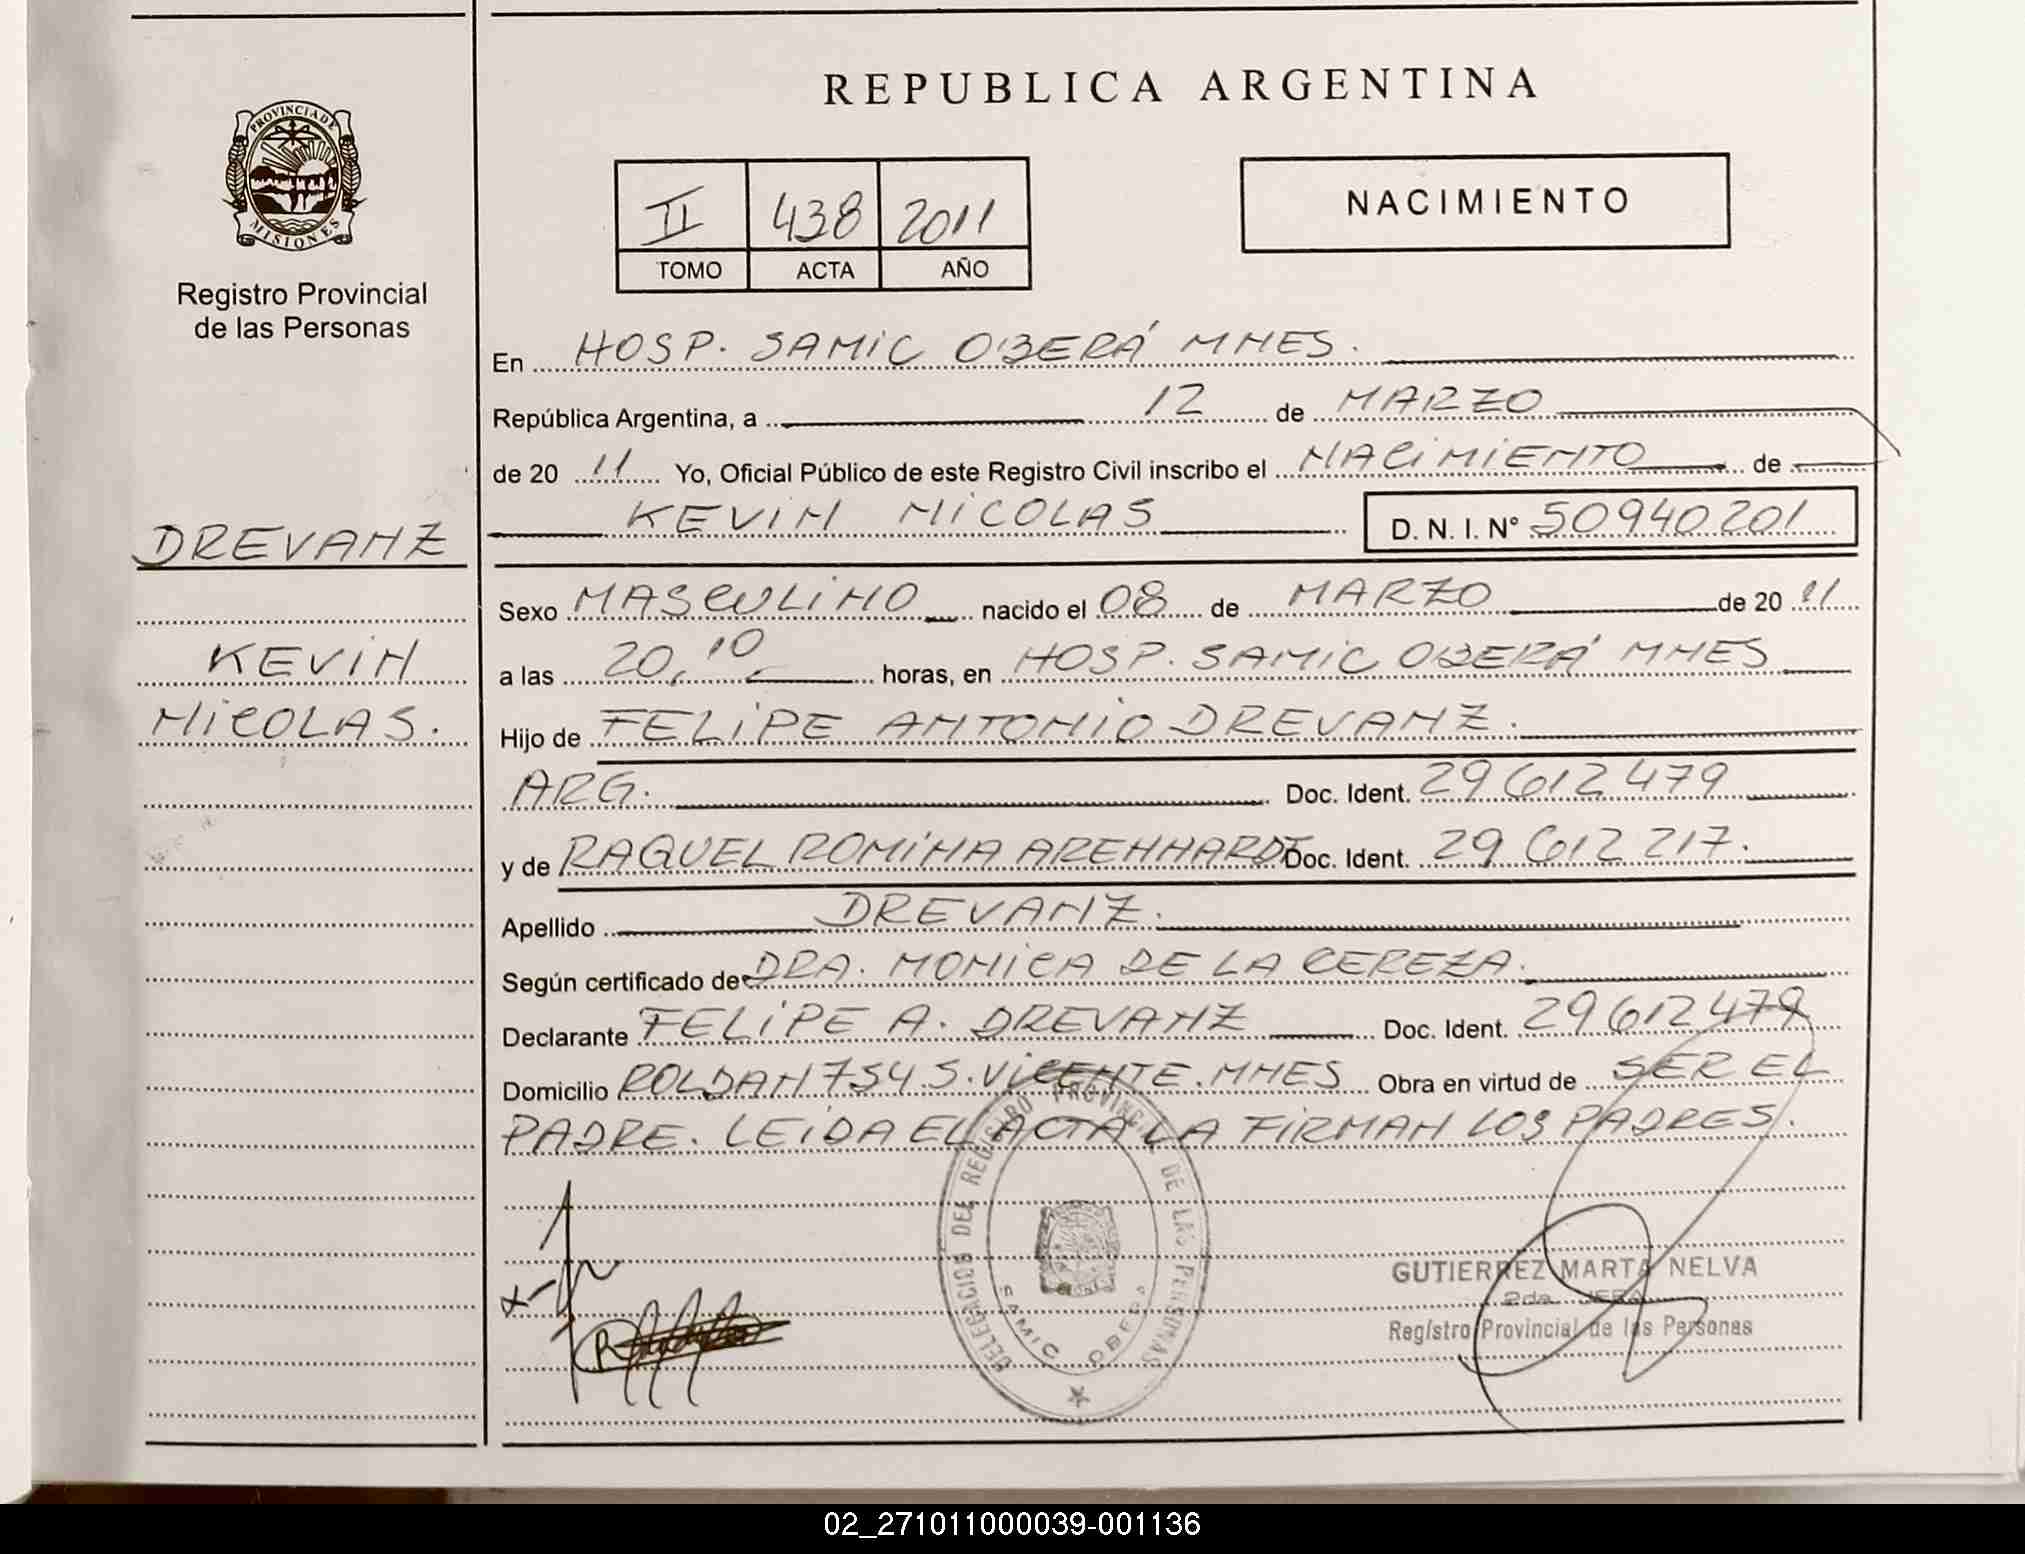 REPUBLICA ARGENTINA
PROVINCIA DE
MISIONES
Registro Provincial
de las Personas
II 438 2011
TOMO ACTA AÑO
NACIMIENTO
En HOSP. SAMIC OBERÁ MNES.
República Argentina, a 12 de MARZO
de 20 11 Yo, Oficial Público de este Registro Civil inscribo el NACIMIENTO de
KEVIN NICOLAS D. N. I. N° 50940201
DREVANZ
KEVIN
NICOLAS.
Sexo MASCULINO nacido el 08 de MARZO de 20 11
a las 20,10 horas, en HOSP. SAMIC OBERÁ MNES
Hijo de FELIPE ANTONIO DREVANZ.
ARG. Doc. Ident. 29612479
y de RAQUEL ROMINA ARENHARDT Doc. Ident. 29612217.
Apellido DREVANZ.
Según certificado de DRA. MONICA DE LA CEREZA.
Declarante FELIPE A. DREVANZ Doc. Ident. 29612479
Domicilio ROLDAN 754 S. VICENTE. MNES Obra en virtud de SER EL
PADRE. LEIDA EL ACTA LA FIRMAN LOS PADRES.
DELEGACION DEL REGISTRO PROVINCIAL DE LAS PERSONAS
SAMIC OBERA
GUTIERREZ MARTA NELVA
2da. JEFA
Registro Provincial de las Personas
02_271011000039-001136